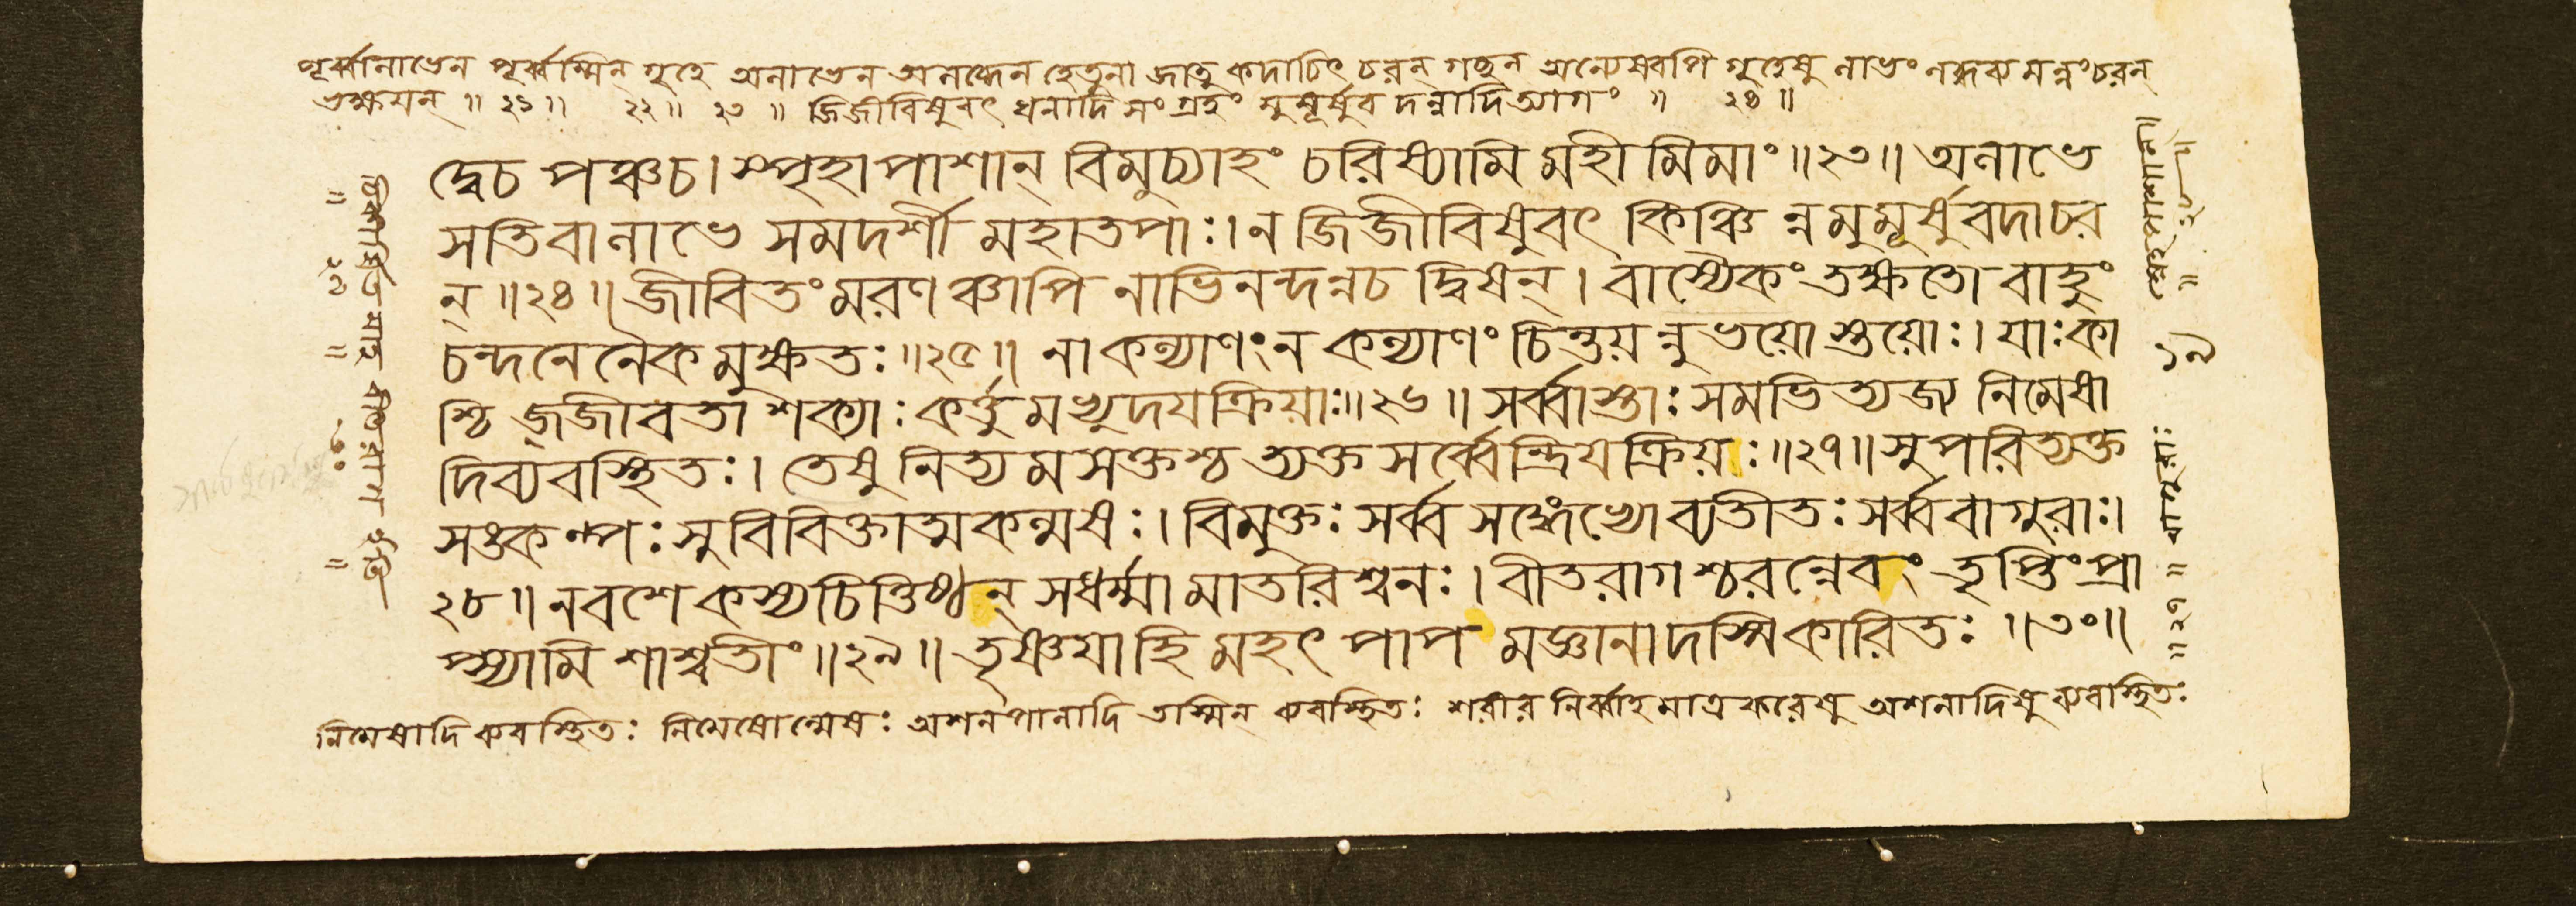 পূর্ব্বানাভেন পূর্ব্বস্মিন্ গৃহে অনাভেন অনব্ধেন হেতুনা জাতু কদাচিৎ চরন্ গচ্ছন্ অন্যেষ্বপি গৃহেষু নাভং নব্ধব্য মন্নং চরন্
ভক্ষয়ন্ ॥ ২১ ॥ ২২ ॥ ২৩ ॥ জিজীবিষুবৎ ধনাদি সংগ্রহং মুমূর্ষুব দন্নাদিত্যাগং ॥ ২৪ ॥
দ্বেচ পঞ্চচ। স্পৃহাপাশান্ বিমুচ্যাহং চরিষ্যামি মহীমিমাং ॥২৩॥ অনাভে
সতিবানাভে সমদর্শী মহাতপাঃ। ন জিজীবিষুবৎ কিঞ্চি ন্নমুমূর্ষুবদাচর
ন্ ॥২৪॥ জীবিতং মরণ ঞ্চাপি নাভিনন্দন্নচ দ্বিষন্। বাস্যৈকং তক্ষতো বাহুং
চন্দনেনৈকমুক্ষতঃ ॥২৫॥ নাকন্যাণং ন কন্যাণং চিন্তয়ন্নুভয়োস্তয়োঃ। যাঃকা
শ্চি জ্জীবতা শক্যাঃ কর্ত্তুমভ্যুদয়ক্রিয়াঃ॥২৬॥ সর্ব্বাস্তাঃ সমভিত্যজ্য নিমেষা
দিব্যবস্থিতঃ। তেষু নিত্যমসক্তশ্চ ত্যক্তসর্ব্বেন্দ্রিয়ক্রিয়ঃ ॥২৭॥ সুপরিত্যক্ত
সঙ্কল্পঃ সুবিবিক্তাত্মকন্মষঃ। বিমুক্তঃ সর্ব্বসঙ্গেভ্যো ব্যতীতঃ সর্ব্ববাগুরাঃ।
২৮॥ নবশে কস্যচিত্তিষ্ঠন্ সধর্ম্মা মাতরিশ্বনঃ। বীতরাগশ্চরন্নেবং তৃপ্তিং প্রা
প্স্যামি শাশ্বতীং ॥২৯॥ তৃষ্ণয়াহি মহৎ পাপ মজ্ঞানাদস্মিকারিতঃ ॥৩০॥
নিমেষাদিব্যবস্থিতঃ নিমেষোন্মেষঃ অশনপানাদি তস্মিন্ ব্যবস্থিতঃ শরীর নির্ব্বাহমাত্রকরেষু অশনাদিষু ব্যবস্থিতঃ
১৯
বাগুরাঃ
॥ ২৭ ॥